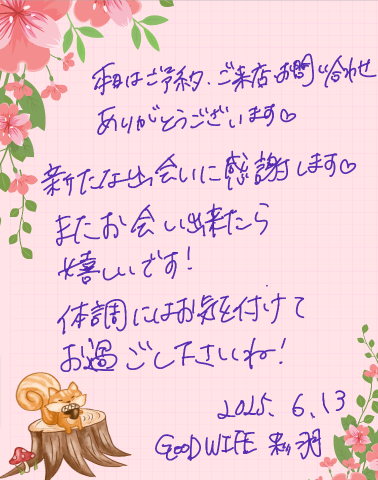 本日はご予約、ご来店、お問い合わせ
ありがとうございます♡
新たな出会いに感謝します♡
またお会い出来たら
嬉しいです!
体調にはお気を付けて
お過ごし下さいね!
2025. 6. 13
GOOD WIFE